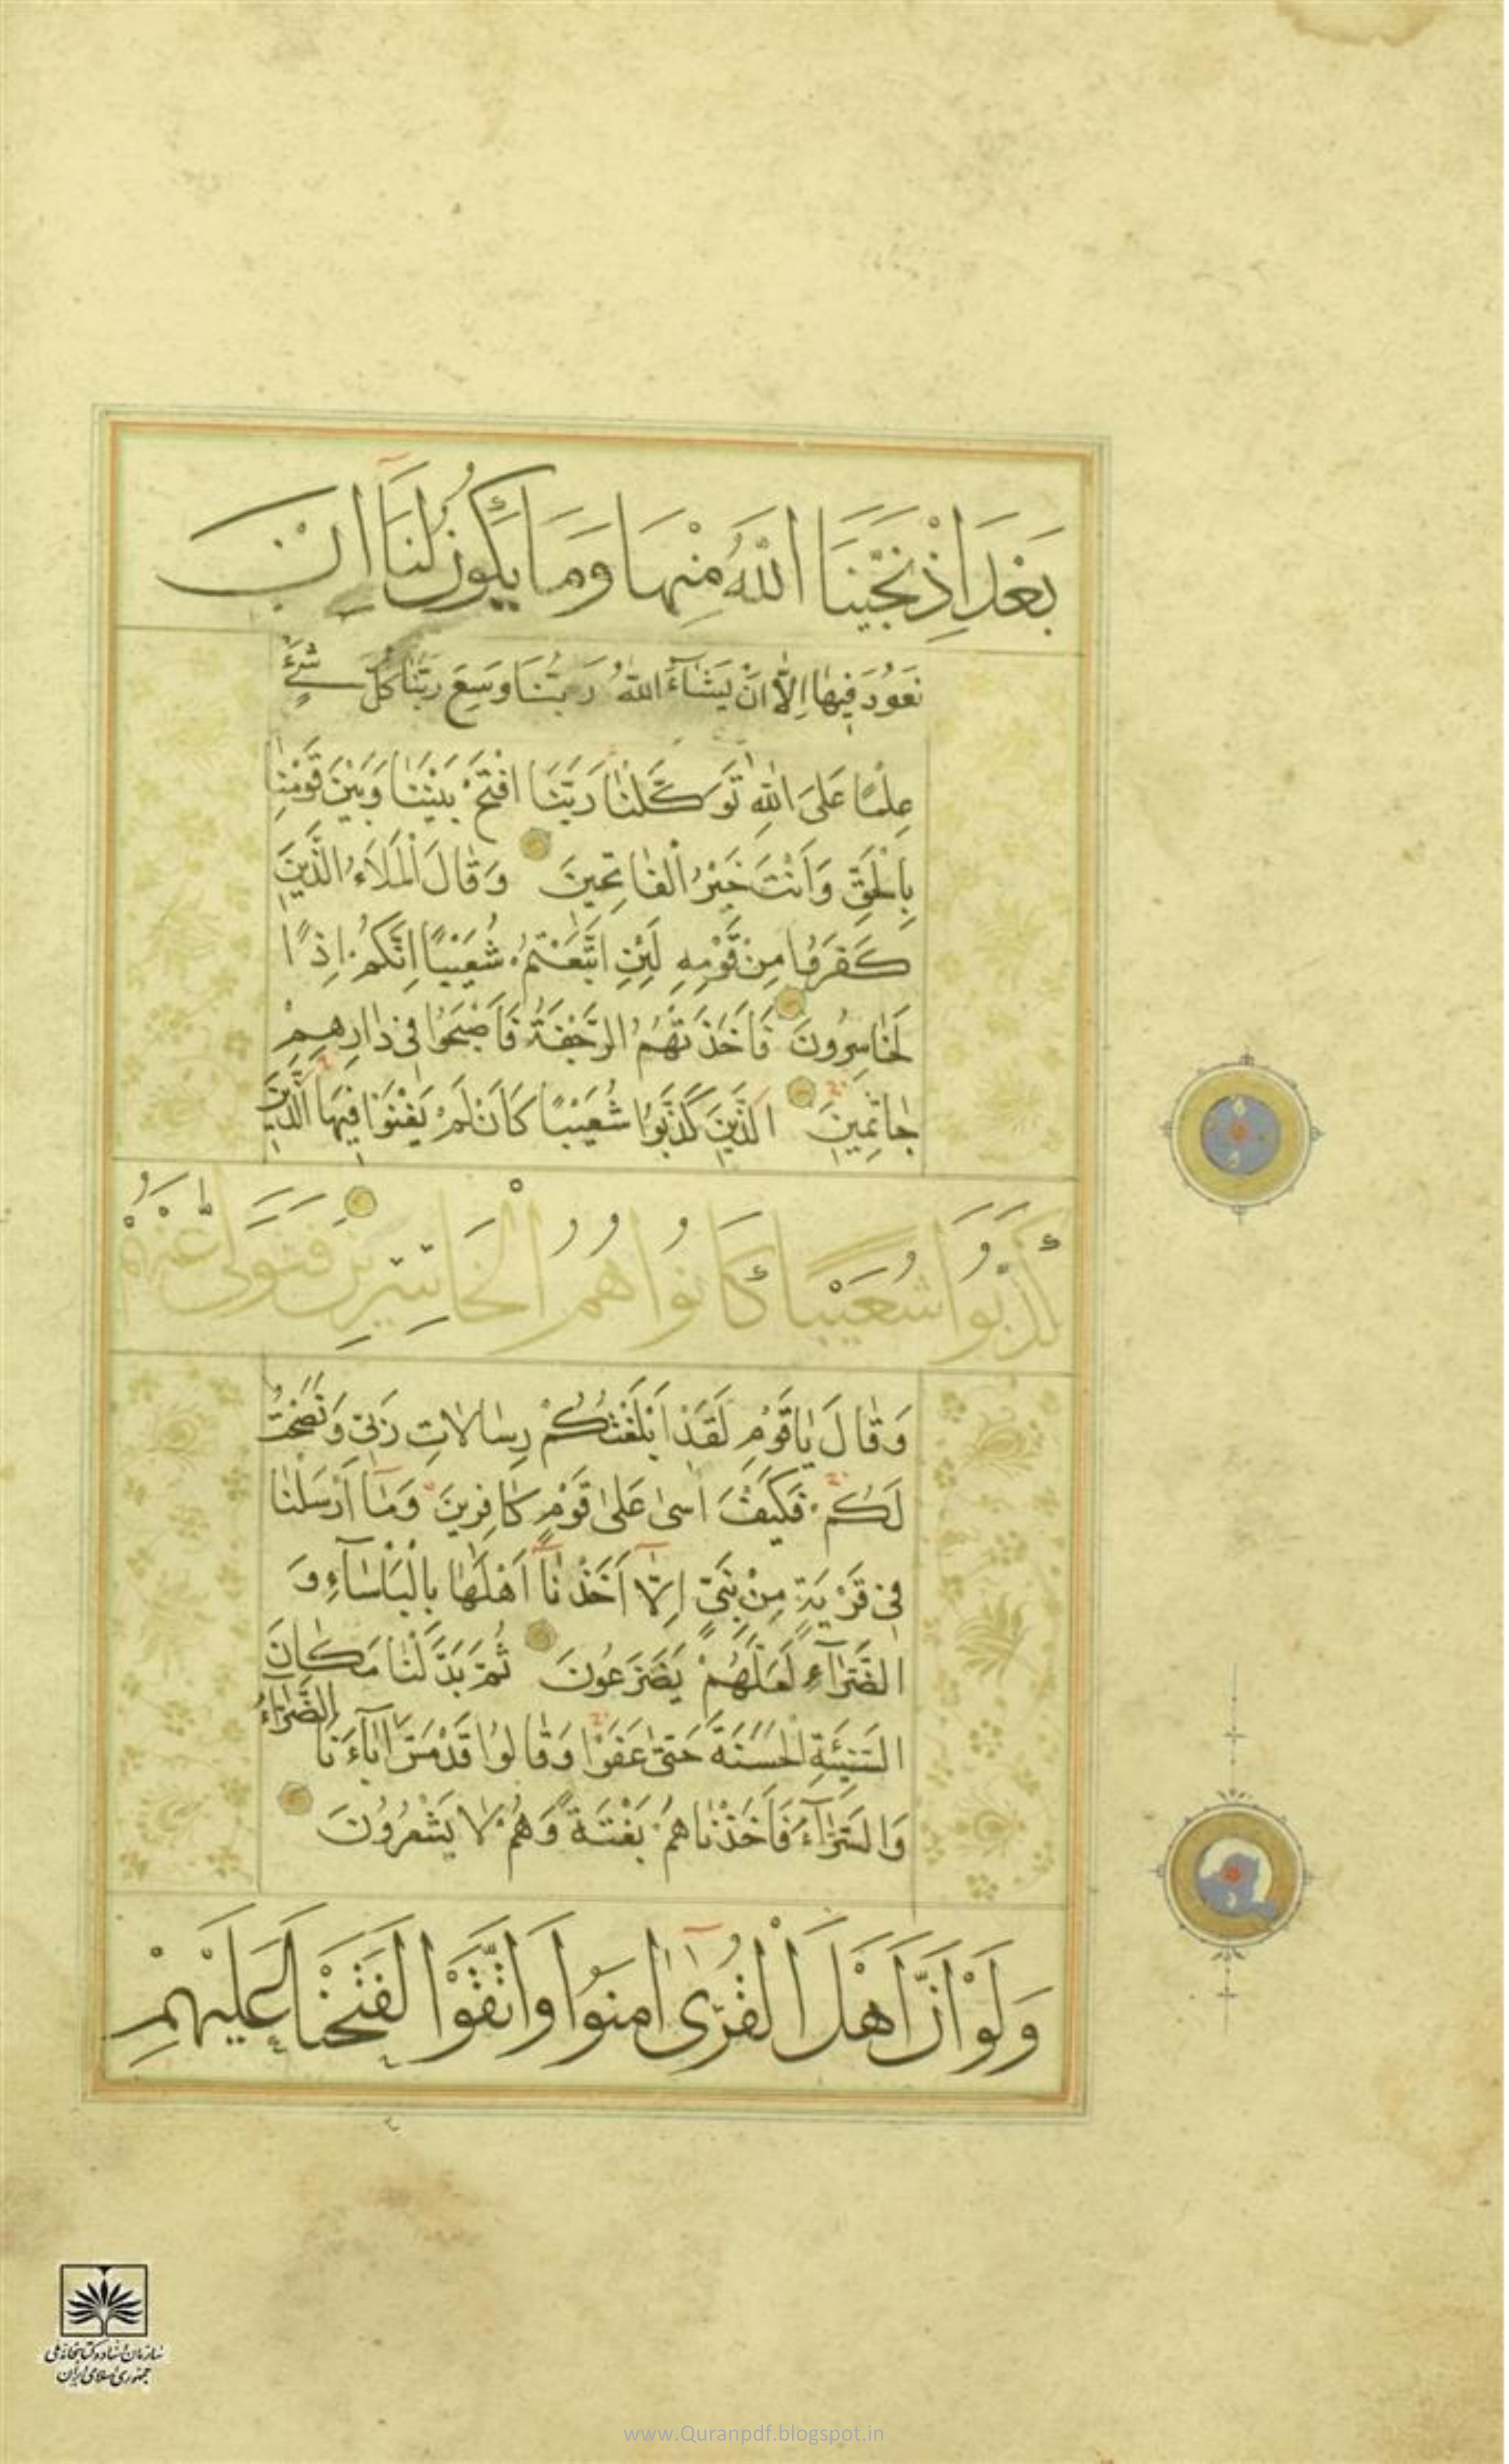 بَعْدَ اِذْ نَجّٰینَا اللّٰهُ مِنْهَا وَمَا یَكُونُ لَنَآ اَنْ
نَعُودَ فِیهَا اِلَّا اَنْ یَشَآءَ اللّٰهُ رَبُّنَا وَسِعَ رَبُّنَا كُلَّ شَیْءٍ
عِلْمًا عَلَی اللّٰهِ تَوَكَّلْنَا رَبَّنَا افْتَحْ بَیْنَنَا وَبَیْنَ قَوْمِنَا
بِالْحَقِّ وَاَنْتَ خَیْرُ الْفَاتِحِینَ وَقَالَ الْمَلَاءُ الَّذِینَ
كَفَرُوا مِنْ قَوْمِهِ لَئِنِ اتَّبَعْتُمْ شُعَیْبًا اِنَّكُمْ اِذًا
لَخَاسِرُونَ فَاَخَذَتْهُمُ الرَّجْفَةُ فَاَصْبَحُوا فِی دَارِهِمْ
جَاثِمِینَ الَّذِینَ كَذَّبُوا شُعَیْبًا كَاَنْ لَمْ یَغْنَوْا فِیهَا الَّذِینَ
كَذَّبُوا شُعَیْبًا كَانُوا هُمُ الْخَاسِرِینَ فَتَوَلّٰی عَنْهُمْ
وَقَالَ یَاقَوْمِ لَقَدْ اَبْلَغْتُكُمْ رِسَالَاتِ رَبِّی وَنَصَحْتُ
لَكُمْ فَكَیْفَ اٰسٰی عَلٰی قَوْمٍ كَافِرِینَ وَمَآ اَرْسَلْنَا
فِی قَرْیَةٍ مِنْ نَبِیٍّ اِلَّآ اَخَذْنَآ اَهْلَهَا بِالْبَاْسَآءِ وَ
الضَّرَّآءِ لَعَلَّهُمْ یَضَّرَّعُونَ ثُمَّ بَدَّلْنَا مَكَانَ
السَّیِّئَةِ الْحَسَنَةَ حَتّٰی عَفَوْا وَقَالُوا قَدْ مَسَّ اٰبَآءَنَا الضَّرَّآءُ
وَالسَّرَّآءُ فَاَخَذْنَاهُمْ بَغْتَةً وَهُمْ لَا یَشْعُرُونَ
وَلَوْ اَنَّ اَهْلَ الْقُرٰٓی اٰمَنُوا وَاتَّقَوْا لَفَتَحْنَا عَلَیْهِمْ
سازمان اسناد و کتابخانه ملی
جمهوری اسلامی ایران
www.Quranpdf.blogspot.in